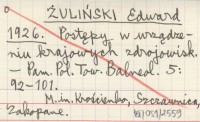 ŻULIŃSKI Edward
1926. Postępy w urządze-
niu krajowych zdrojowisk.
- Pam. Pol. Tow. Balneol. 5:
92-101.
M.in. Krościenko, Szczawnica,
Zakopane.